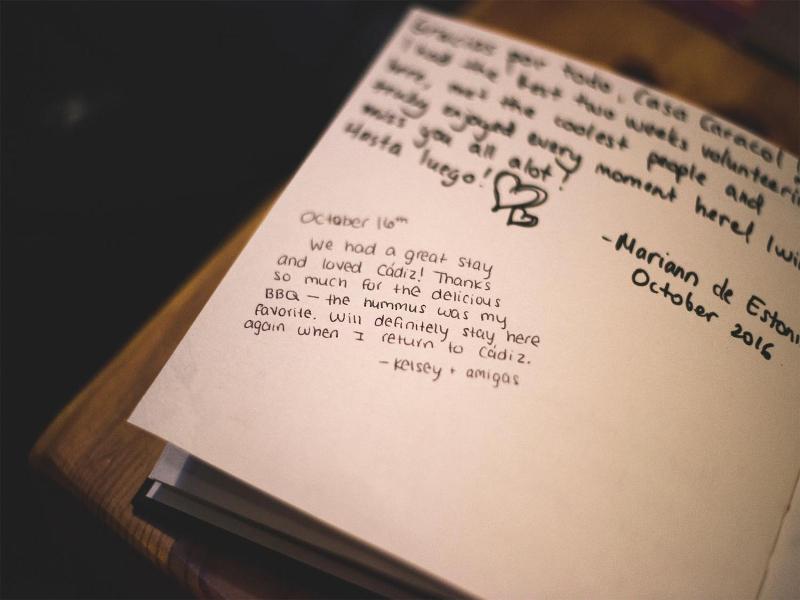 Gracias por todo, Casa Caracol
I had the best two weeks volunteerin
here, met the coolest people and
really enjoyed every moment here! I wil
miss you all alot!
Hasta luego!
-Mariann de Estoni
October 2016
October 16th
We had a great stay
and loved Cádiz! Thanks
so much for the delicious
BBQ – the hummus was my
favorite. Will definitely stay here
again when I return to Cádiz.
- Kelsey + amigas